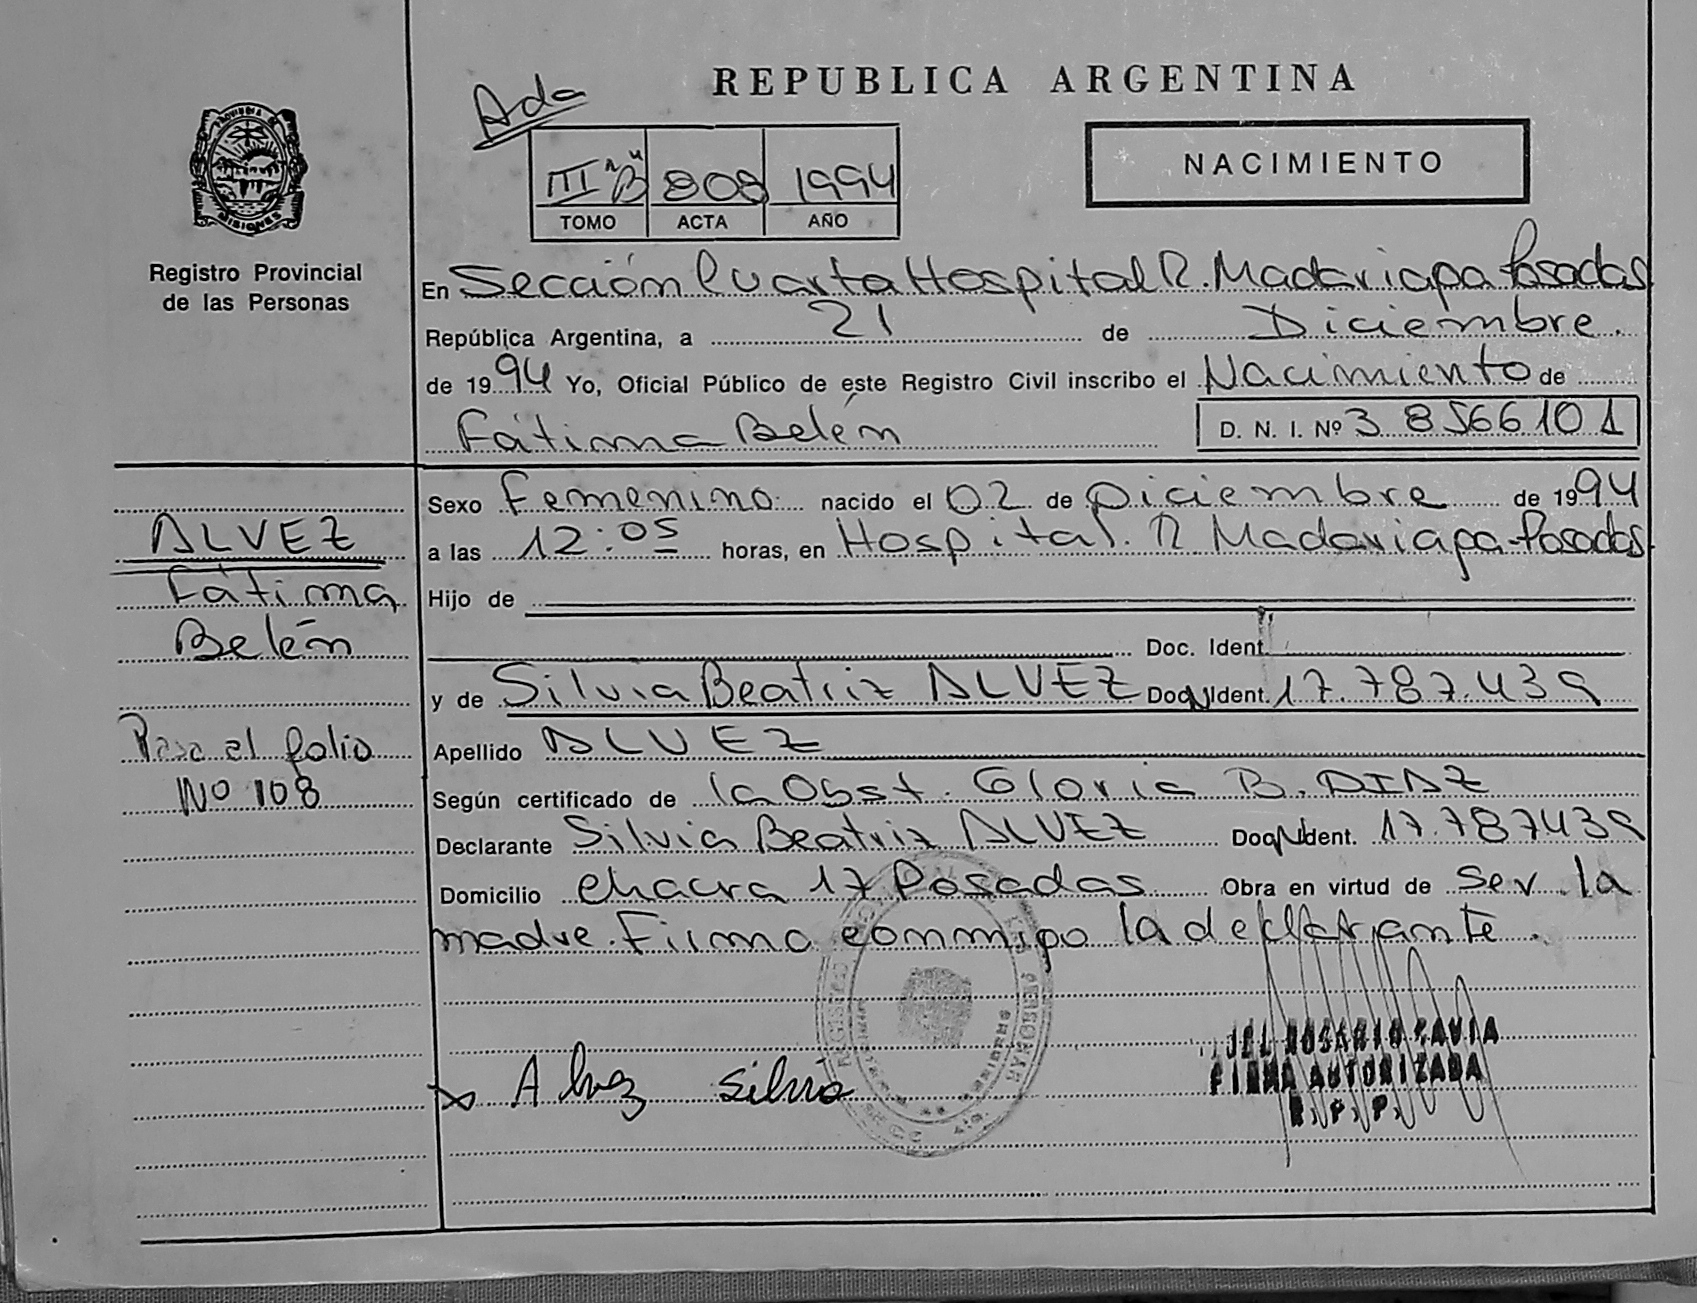 REPUBLICA ARGENTINA
Ada
NACIMIENTO
III "B" 808 1994
TOMO ACTA AÑO
PROVINCIA DE MISIONES
Registro Provincial
de las Personas
En Sección Cuarta Hospital R. Madariaga Posadas
República Argentina, a 21 de Diciembre.
de 1994 Yo, Oficial Público de este Registro Civil inscribo el Nacimiento de
Fátima Belén D. N. I. Nº 38566101
Sexo Femenino nacido el 02 de Diciembre de 1994
a las 12:05 horas, en Hospital. R Madariaga-Posadas
Hijo de
Doc. Ident.
y de Silvia Beatriz ALVEZ Doc. Ident. 17.787.439
Apellido ALVEZ
Según certificado de la Obst. Gloria B. DIAZ
Declarante Silvia Beatriz ALVEZ Doc. Ident. 17.787439
Domicilio chacra 17 Posadas Obra en virtud de ser la
madre. Firma conmigo la declarante.
ALVEZ
Fátima
Belén
Pasa al folio
Nº 108
x Alvez Silvia
DEL ROSARIO GAVIA
FIRMA AUTORIZADA
R. P. P.